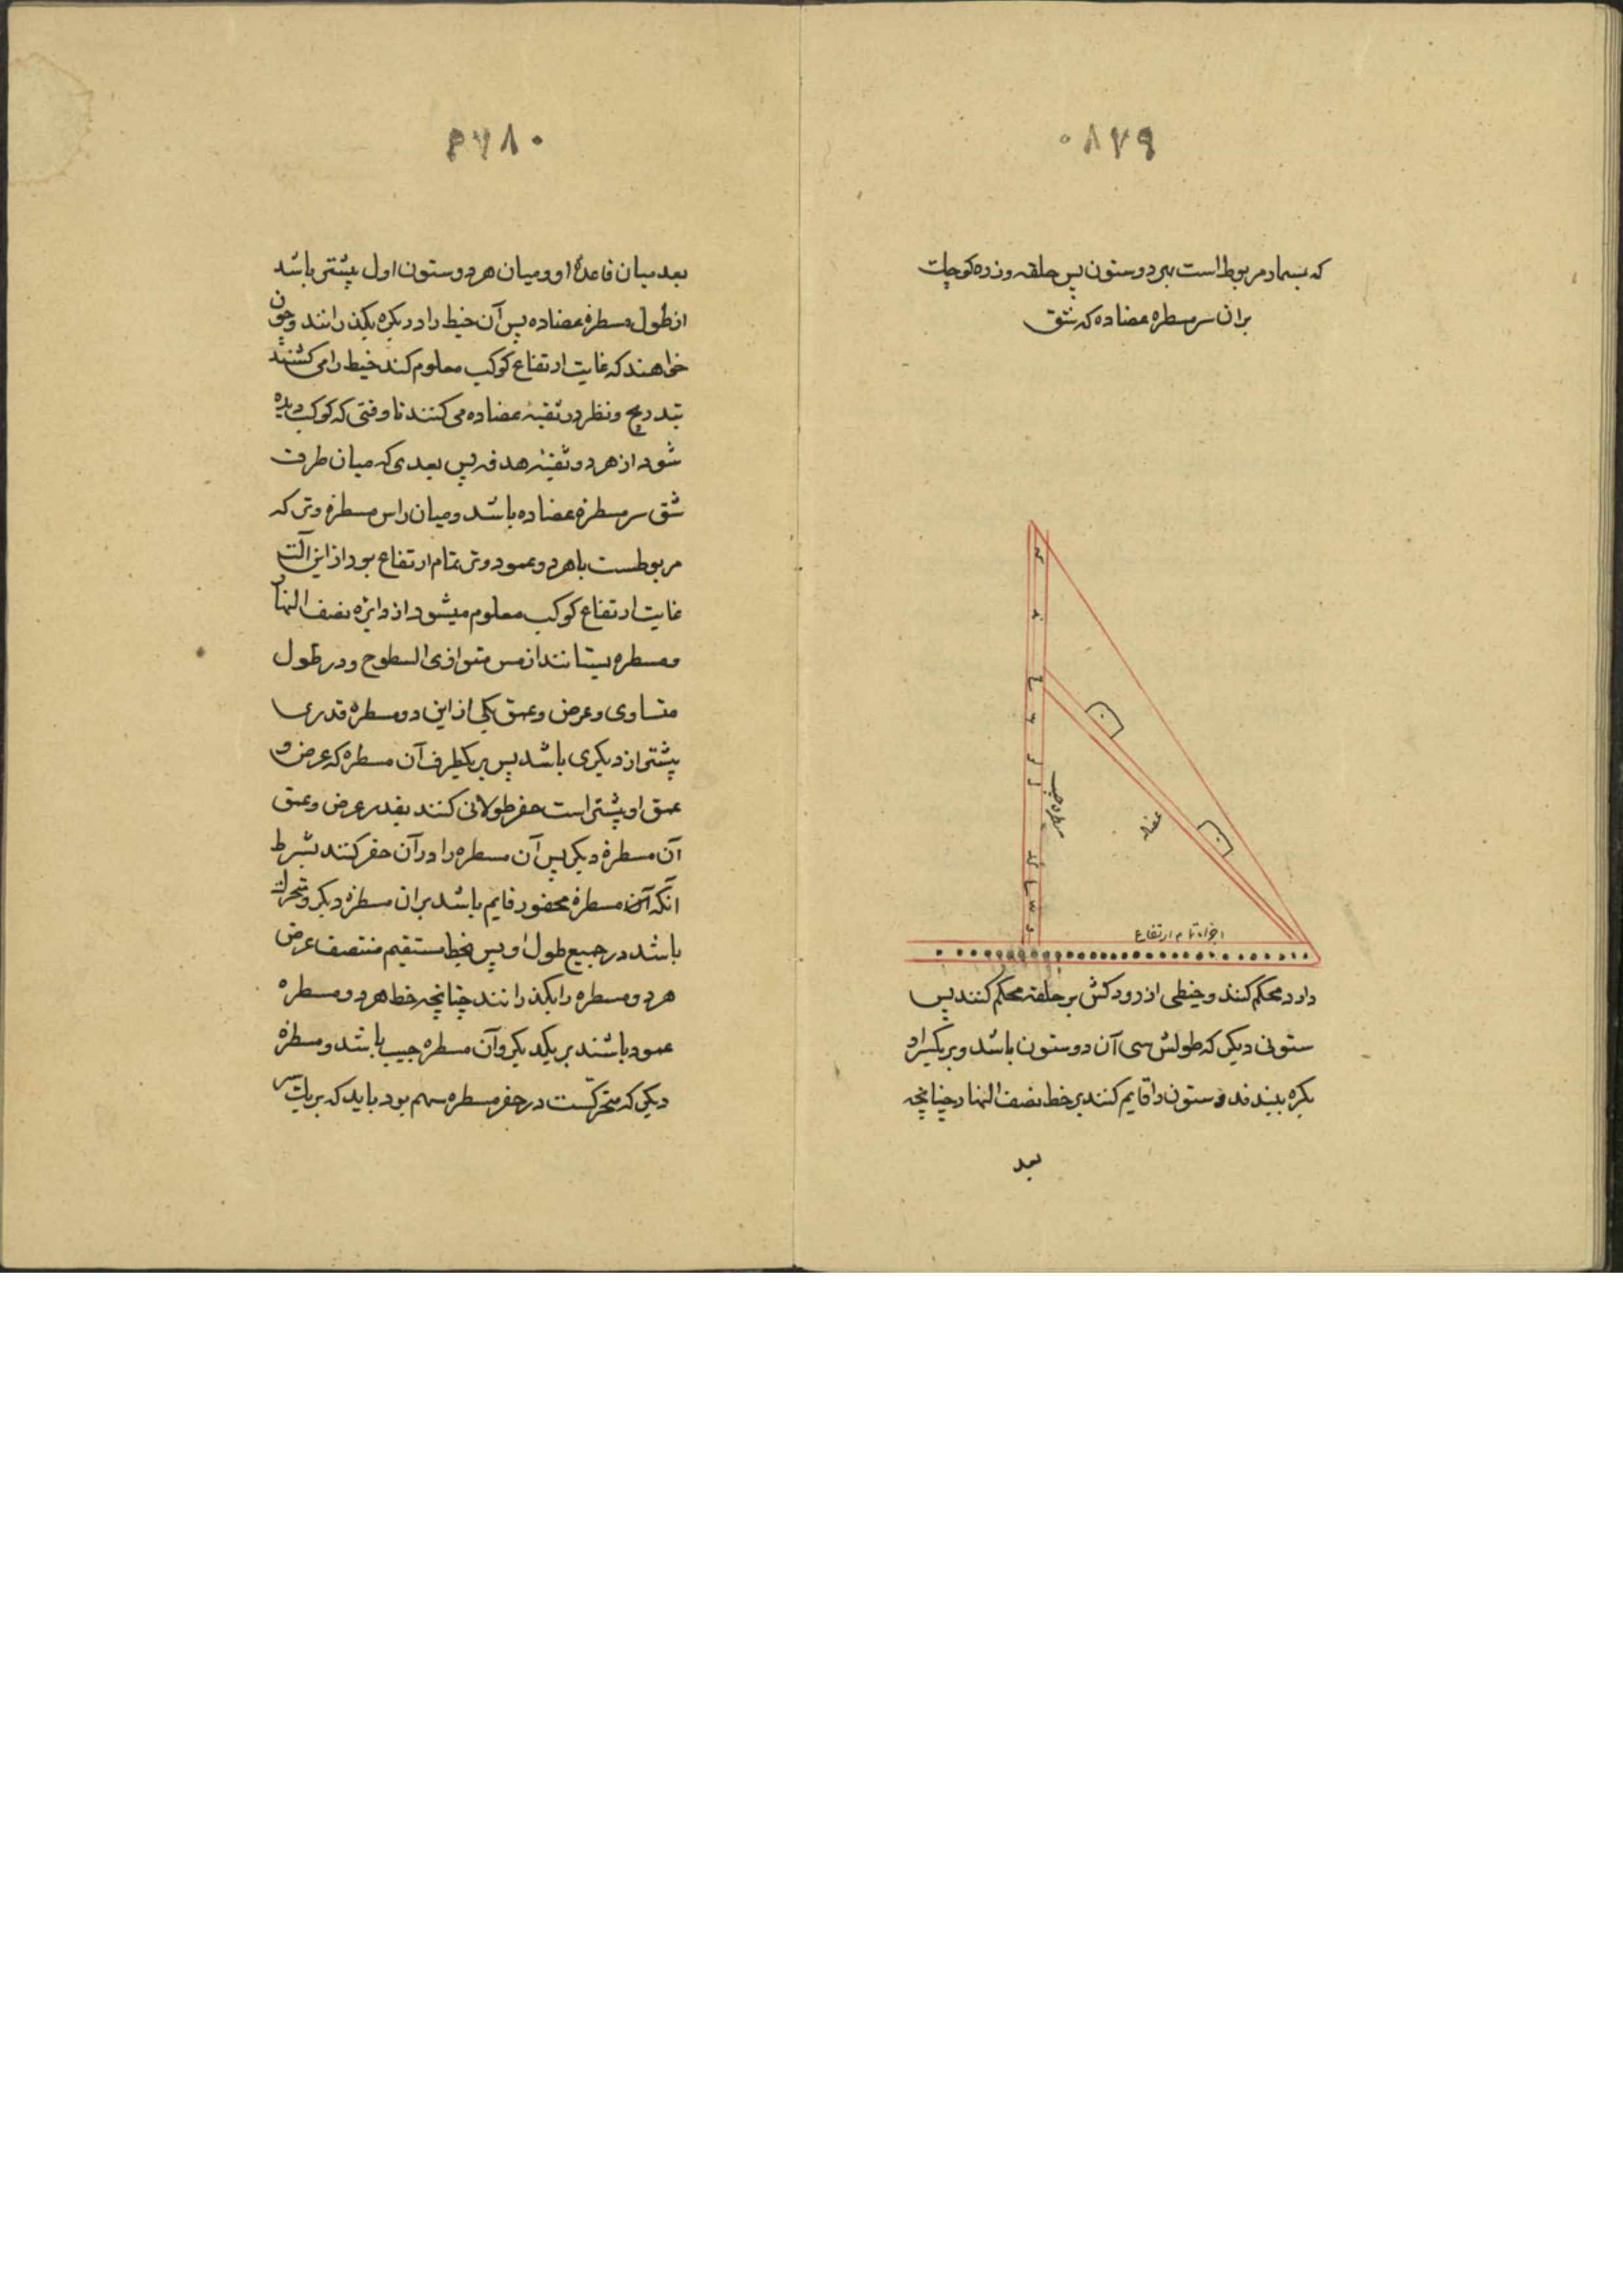 ۰۸۷۹
که بسمار مربوط است بهر دو ستون پس حلقه وزده کوچک
بران سر مسطره عضاده که شق
مسطره جیب
عضاده
اجزاء تمام ارتفاع
دارد محکم کنند و خیطی از رودکش بر حلقه محکم کنند پس
ستونی دیکر که طولش سی آن دو ستون باشد و بر یکسر او
بکره ببندند و ستون را قایم کنند بر خط نصف النهار چنانچه
بعد
۰۸۷۶
بعد میان قاعدهٔ او و میان هر دو ستون اول بیشتر باشد
از طول مسطرهٔ عضاده پس آن خیط را در بکره بکذرانند و چون
خواهند که غایت ارتفاع کوکب معلوم کنند خیط را می کشند
بتدریج و نظر در ثقبهٔ عضاده می کنند تا وقتی که کوکب دیده
شود از هر دو ثقبهٔ هدفه پس بعدی که میان طرف
شق سر مسطرهٔ عضاده باشد و میان راس مسطرهٔ وتر که
مربوطست با هر دو عمود وتر تمام ارتفاع بود از این آلت
غایت ارتفاع کوکب معلوم میشود از دایرهٔ نصف النهار
مسطره بستانند از مس متوازی السطوح و در طول
متساوی و عرض و عمق یکی از این دو مسطره قدری
بیشتر از دیکری باشد پس بر یکطرف آن مسطره که عرض و
عمق او بیشتر است حفر طولانی کنند بقدر عرض و عمق
آن مسطرهٔ دیکر پس آن مسطره را در آن حفر کنند بشرط
آنکه آن مسطرهٔ محفور قایم باشد بران مسطرهٔ دیکر و متحرک
باشد در جمیع طول او پس بخط مستقیم منتصف عرض
هر دو مسطره را بکذرانند چنانچه خط هر دو مسطره
عمود باشند بر یکدیکر و آن مسطره جیب باشد و مسطرهٔ
دیکر که متحرکست در حفر مسطره سهم بود باید که بر یک سر